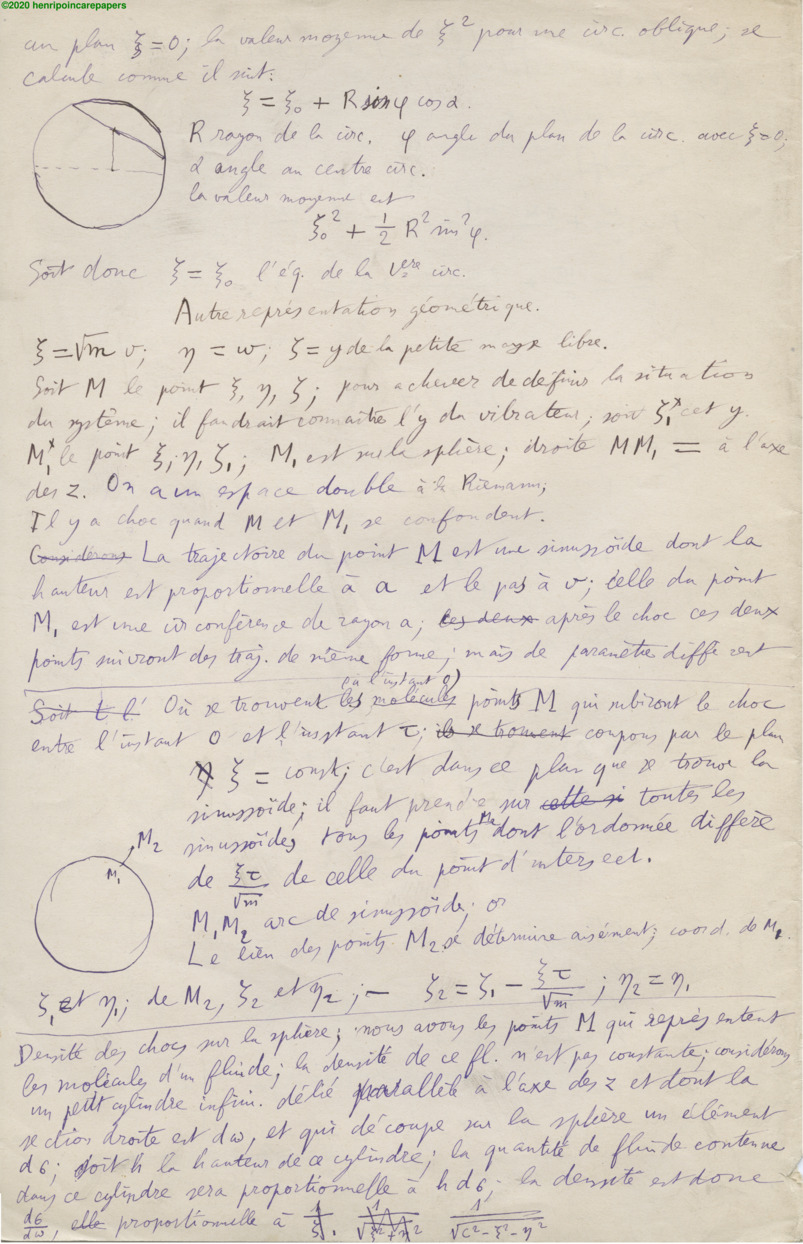 ©2020 henripoincarepapers
un plan ξ=0; la valeur moyenne de ξ² pour une circ. oblique; se
calcule comme il suit:
ξ = ξ₀ + R sin φ cos α.
R rayon de la circ. φ angle du plan de la circ. avec ξ=0;
α angle au centre circ.
la valeur moyenne est
ξ₀² + ½ R² sin² φ.
Soit donc ξ = ξ₀ l'éq. de la circ.
Autre représentation géométrique.
ξ = √m v; η = w; ζ = y de la petite masse libre.
Soit M le point ξ, η, ζ; pour achever de définir la situation
du système; il faudrait connaître l'y du vibrateur; soit ζ₁ cet y.
M₁ le point ξ, η, ζ₁; M₁ est sur la sphère; droite MM₁ = à l'axe
des z. On a un espace double à la Riemann;
Il y a choc quand M et M₁ se confondent.
Considérons La trajectoire du point M est une sinussoïde dont la
hauteur est proportionnelle à a et le pas à v; celle du point
M₁ est une circonférence de rayon a; les deux après le choc ces deux
points suivront des traj. de même forme; mais de paramètre différent
(à l'instant 0)
Soit t l' Où se trouvent les molécules points M qui subiront le choc
entre l'instant 0 et l'instant τ; ils se trouvent coupons par le plan
η ξ = const; c'est dans ce plan que se trouve la
sinussoïde; il faut prendre sur cette si toutes les
sinussoïdes tous les points M₂ dont l'ordonnée diffère
M₂
M₁
de ξτ/√m de celle du point d'intersect.
M₁M₂ arc de sinussoïde; or
Le lieu des points M₂ se détermine aisément; coord. de M₁
ζ₁ et η₁; de M₂, ζ₂ et η₂; — ζ₂ = ζ₁ − ξτ/√m; η₂ = η₁
Densité des chocs sur la sphère; nous avons les points M qui représentent
les molécules d'un fluide; la densité de ce fl. n'est pas constante; considérons
un petit cylindre infin. délié parallèle à l'axe des z et dont la
section droite est dω, et qui découpe sur la sphère un élément
dσ; soit h la hauteur de ce cylindre; la quantité de fluide contenue
dans ce cylindre sera proportionnelle à h dσ; la densité est donc
dσ/dω, elle proportionnelle à 1/ξ. 1/√ξ²+η² 1/√c²−ξ²−η²